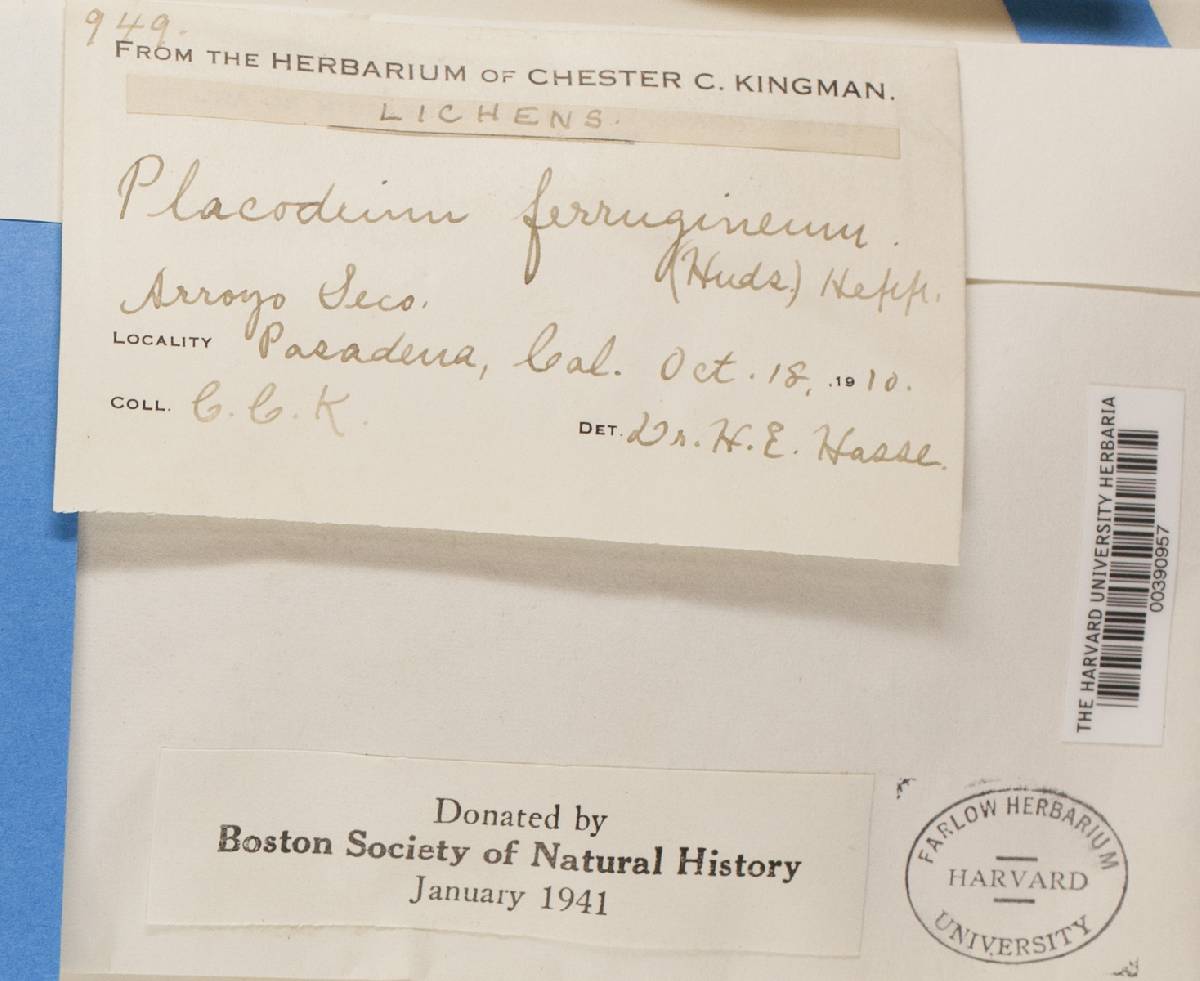 949.
FROM THE HERBARIUM OF CHESTER C. KINGMAN.
LICHENS.
Placodium ferrugineum.
(Huds.) Hepp.
Arroyo Seco.
LOCALITY Pasadena, Cal. Oct. 18, 1910.
COLL. C. C. K. DET. Dr. H. E. Hasse.
THE HARVARD UNIVERSITY HERBARIA
00390957
Donated by
Boston Society of Natural History
January 1941
FARLOW HERBARIUM
HARVARD
UNIVERSITY